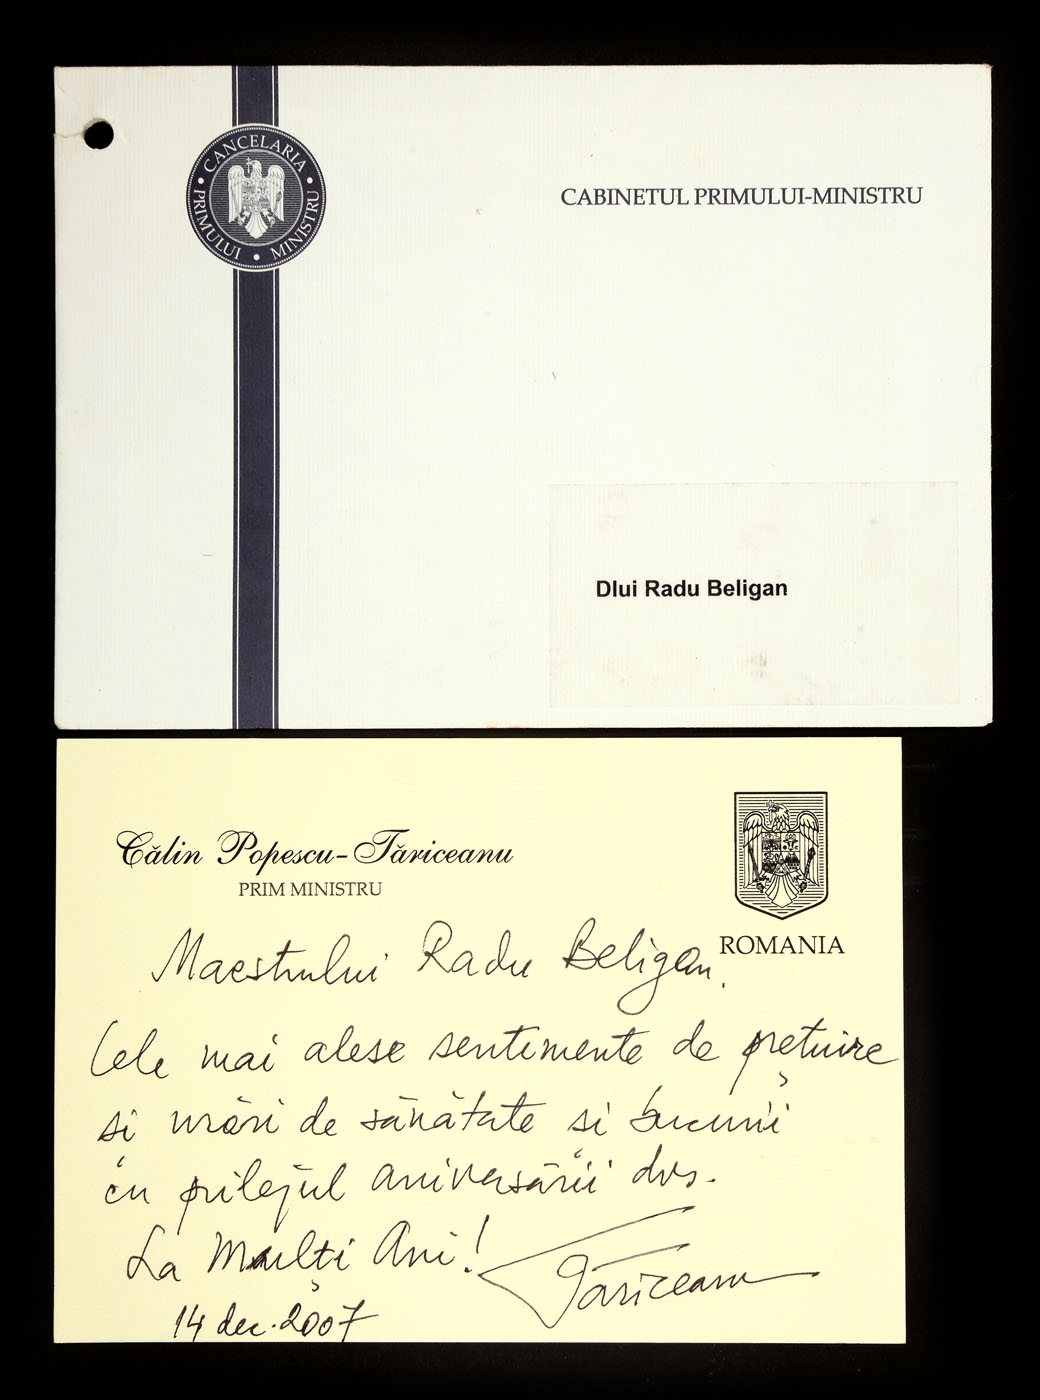 CANCELARIA PRIMULUI MINISTRU
CABINETUL PRIMULUI-MINISTRU
Dlui Radu Beligan
Călin Popescu-Tăriceanu
PRIM MINISTRU
ROMANIA
Maestrului Radu Beligan,
Cele mai alese sentimente de prețuire
și urări de sănătate și bucurii
cu prilejul aniversării dvs.
La Mulți Ani!
Tăriceanu
14 dec. 2007